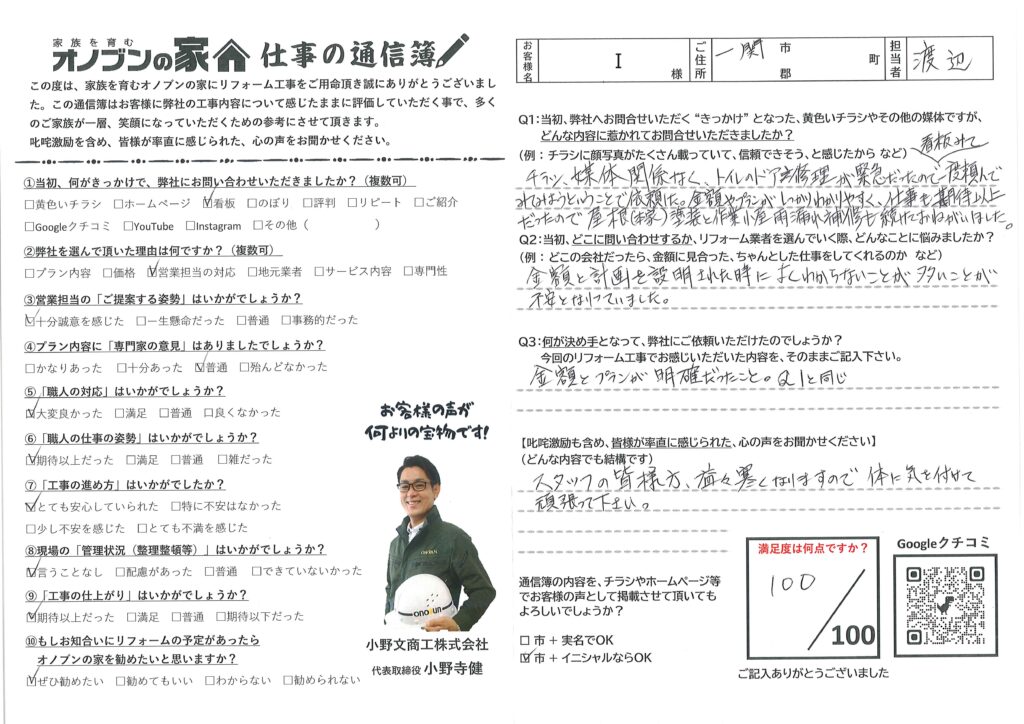 家族を育む
オノブンの家 仕事の通信簿
この度は、家族を育むオノブンの家にリフォーム工事をご用命頂き誠にありがとうございまし
た。この通信簿はお客様に弊社の工事内容について感じたままに評価していただく事で、多く
のご家族が一層、笑顔になっていただくための参考にさせて頂きます。
叱咤激励を含め、皆様が率直に感じられた、心の声をお聞かせください。
①当初、何がきっかけで、弊社にお問い合わせいただきましたか？（複数可）
□黄色いチラシ □ホームページ ☑看板 □のぼり □評判 □リピート □ご紹介
□Googleクチコミ □YouTube □Instagram □その他（ ）
②弊社を選んで頂いた理由は何ですか？（複数可）
□プラン内容 □価格 ☑営業担当の対応 □地元業者 □サービス内容 □専門性
③営業担当の「ご提案する姿勢」はいかがでしょうか？
☑十分誠意を感じた □一生懸命だった □普通 □事務的だった
④プラン内容に「専門家の意見」はありましたでしょうか？
□かなりあった □十分あった ☑普通 □殆んどなかった
⑤「職人の対応」はいかがでしょうか？
☑大変良かった □満足 □普通 □良くなかった
⑥「職人の仕事の姿勢」はいかがでしょうか？
☑期待以上だった □満足 □普通 □雑だった
⑦「工事の進め方」はいかがでしたか？
☑とても安心していられた □特に不安はなかった
□少し不安を感じた □とても不満を感じた
⑧現場の「管理状況（整理整頓等）」はいかがでしょうか？
☑言うことなし □配慮があった □普通 □できていなかった
⑨「工事の仕上がり」はいかがでしょうか？
☑期待以上だった □満足 □普通 □期待以下だった
⑩もしお知合いにリフォームの予定があったら
オノブンの家を勧めたいと思いますか？
☑ぜひ勧めたい □勧めてもいい □わからない □勧められない
お客様の声が
何よりの宝物です！
ONOBUN
onobun
小野文商工株式会社
代表取締役 小野寺健
お客様名 I 様 ご住所 一関 市 郡 町 担当者 渡辺
Q1：当初、弊社へお問合せいただく“きっかけ”となった、黄色いチラシやその他の媒体ですが、
どんな内容に惹かれてお問合せいただきましたか？
（例：チラシに顔写真がたくさん載っていて、信頼できそう、と感じたから など）
看板みて
チラシ、媒体関係なく、トイレのドア修理が緊急だったので一度頼んで
みてみようということで依頼した。金額やプランがしっかりわかりやすく、仕事も期待以上
だったので屋根(本家)塗装と作業小屋雨漏れ補修も続けておねがいしました。
Q2：当初、どこに問い合わせするか、リフォーム業者を選んでいく際、どんなことに悩みましたか？
（例：どこの会社だったら、金額に見合った、ちゃんとした仕事をしてくれるのか など）
金額と計画を説明された時によくわからないことが多いことが
不安となっていました。
Q3：何が決め手となって、弊社にご依頼いただけたのでしょうか？
今回のリフォーム工事でお感じいただいた内容を、そのままご記入下さい。
金額とプランが明確だったこと。Q1と同じ
【叱咤激励も含め、皆様が率直に感じられた、心の声をお聞かせください】
（どんな内容でも結構です）
スタッフの皆様方、益々寒くなりますので体に気を付けて
頑張って下さい。
通信簿の内容を、チラシやホームページ等
でお客様の声として掲載させて頂いても
よろしいでしょうか？
□ 市 + 実名でOK
☑ 市 + イニシャルならOK
満足度は何点ですか？
100
100
Googleクチコミ
ご記入ありがとうございました